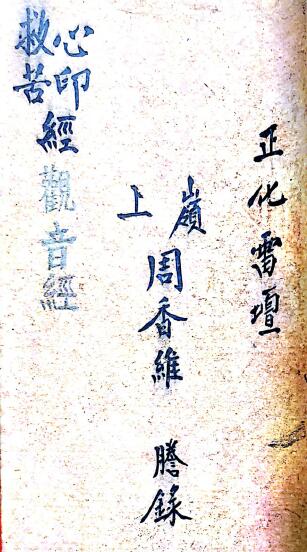 正化雷壇
嶺上
周香維 謄錄
心印
救苦
經觀音經